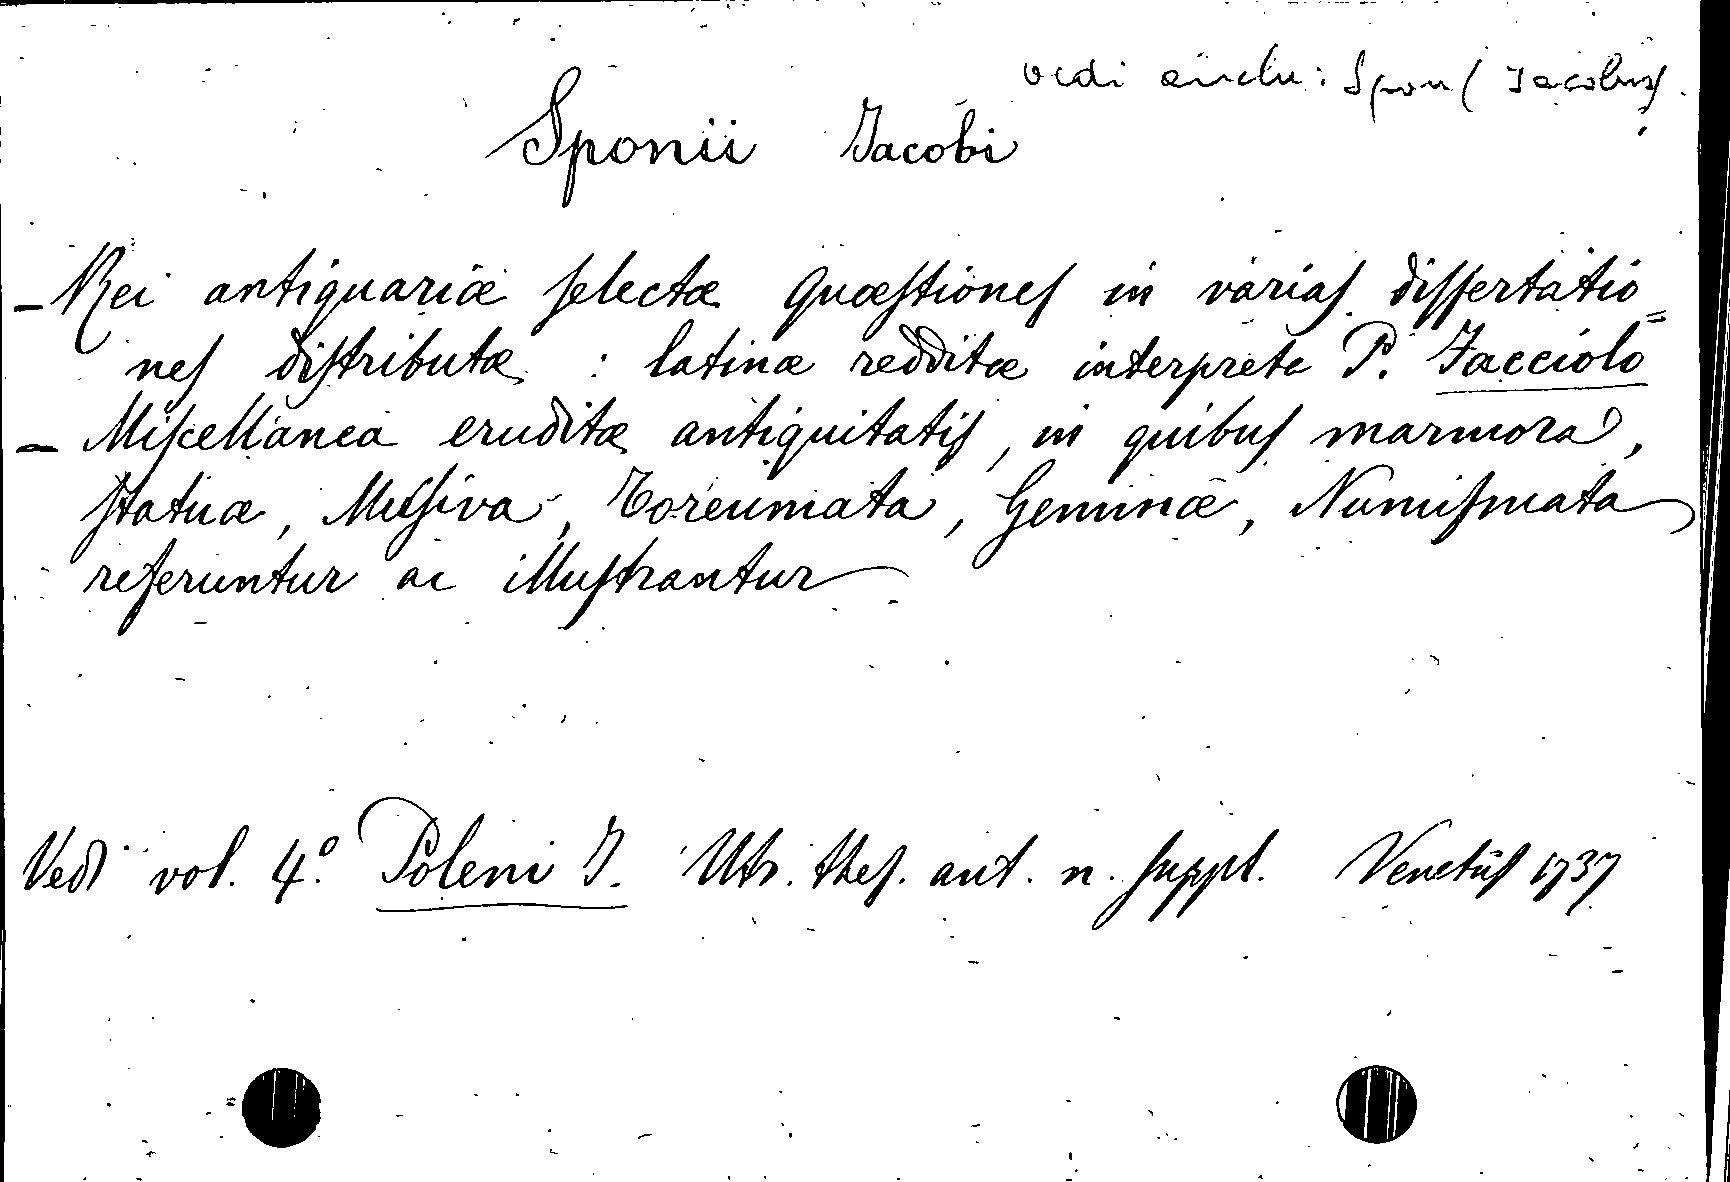 vedi anche: Spon (Jacobus)
Sponii Jacobi
- Rei antiquariæ selectæ Quæstiones in varias dissertatio=
nes distributæ : latinæ redditæ interprete P. Facciolo
- Miscellanea eruditæ antiquitatis, in quibus marmora,
statuæ, Musiva, Toreumata, Gemmæ, Numismata
referuntur ac illustrantur
Vedi vol. 4.º Poleni J. Utr. thes. ant. n. suppl. Venetiis 1737